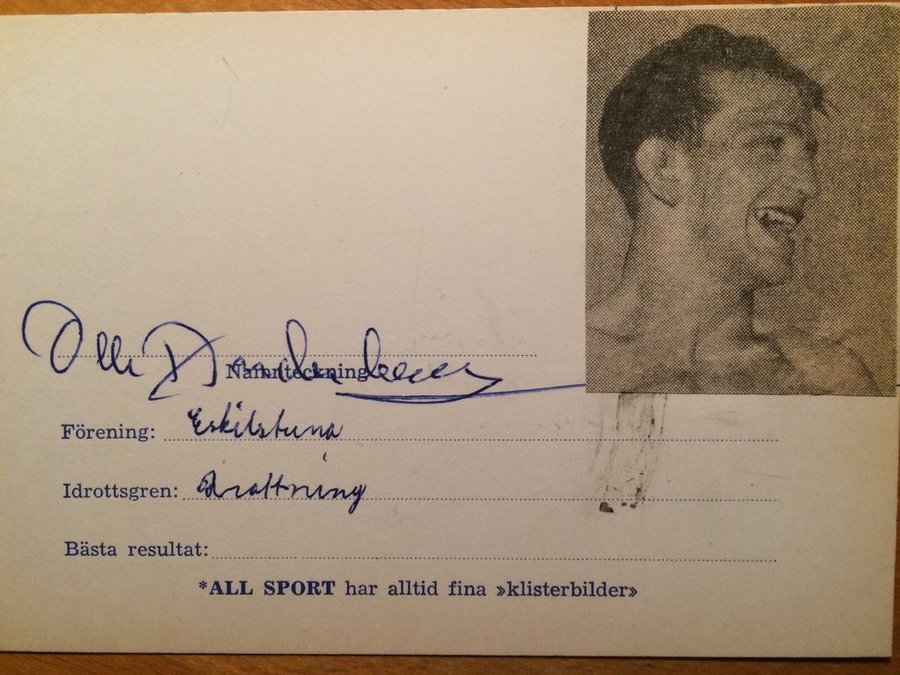 Olle Anderberg
Namnteckning
Förening: Eskilstuna
Idrottsgren: Brottning
Bästa resultat:
*ALL SPORT har alltid fina »klisterbilder»